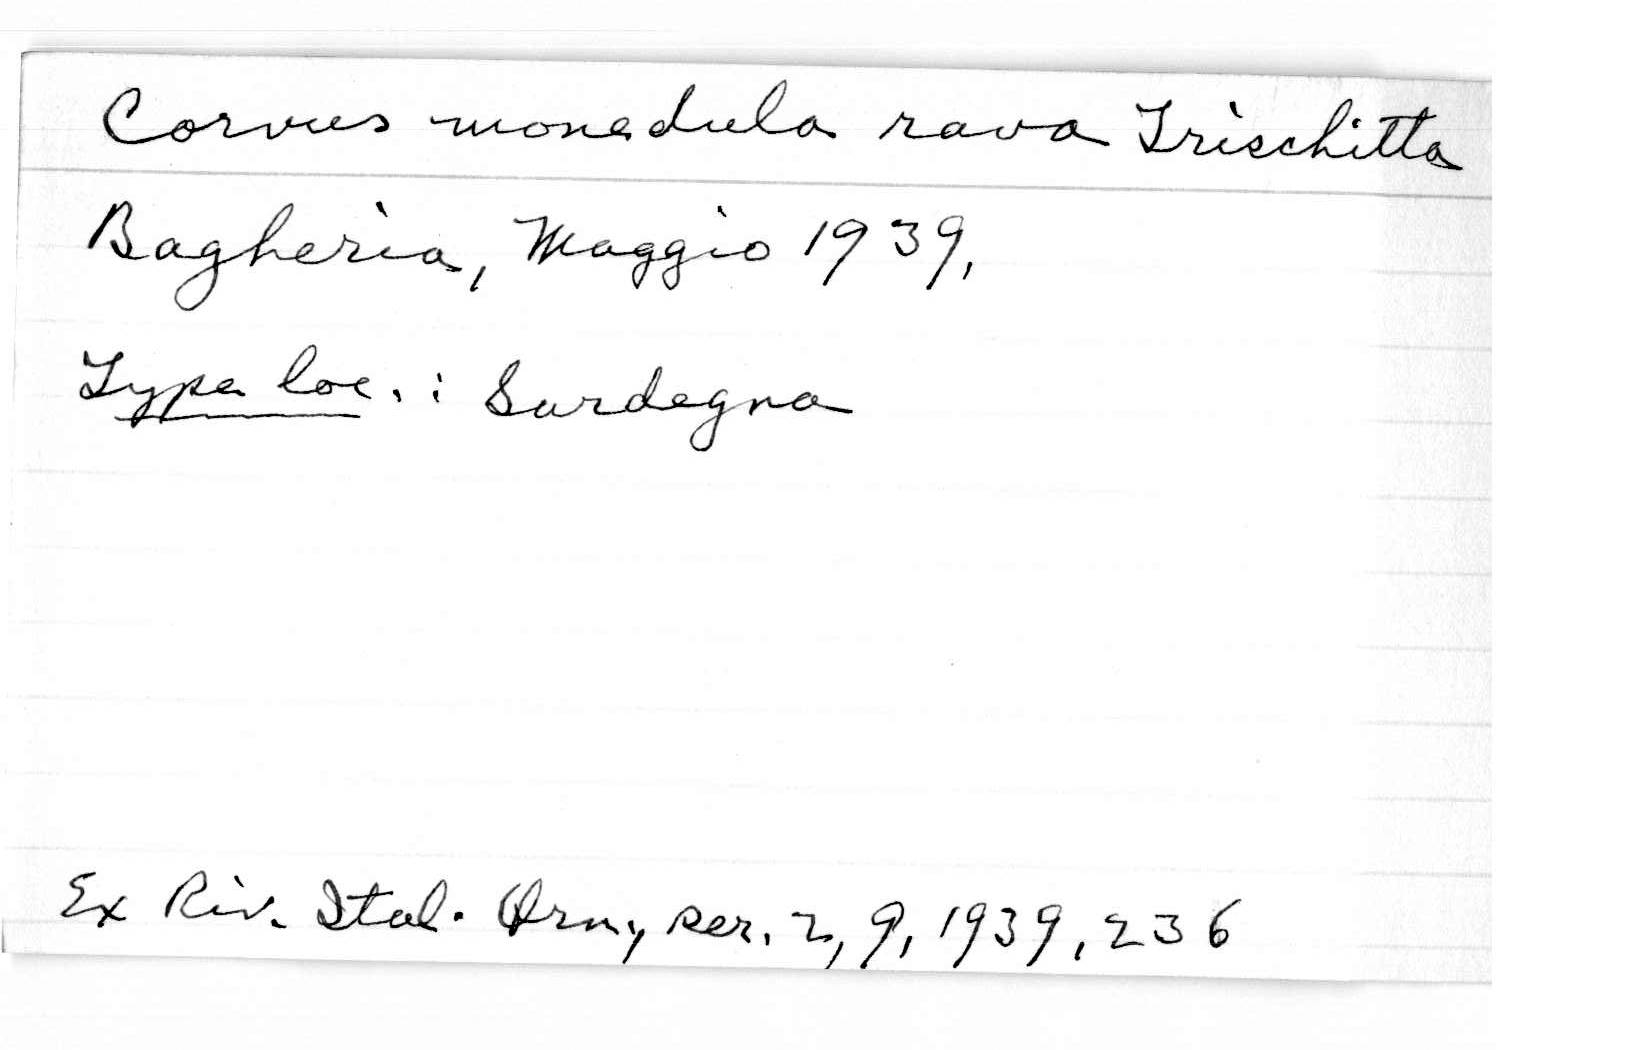 Corvus monedula rava Trischitta
Bagheria, Maggio 1939,
Type loc. : Sardegna
Ex Riv. Ital. Orn., ser. 2, 9, 1939, 236